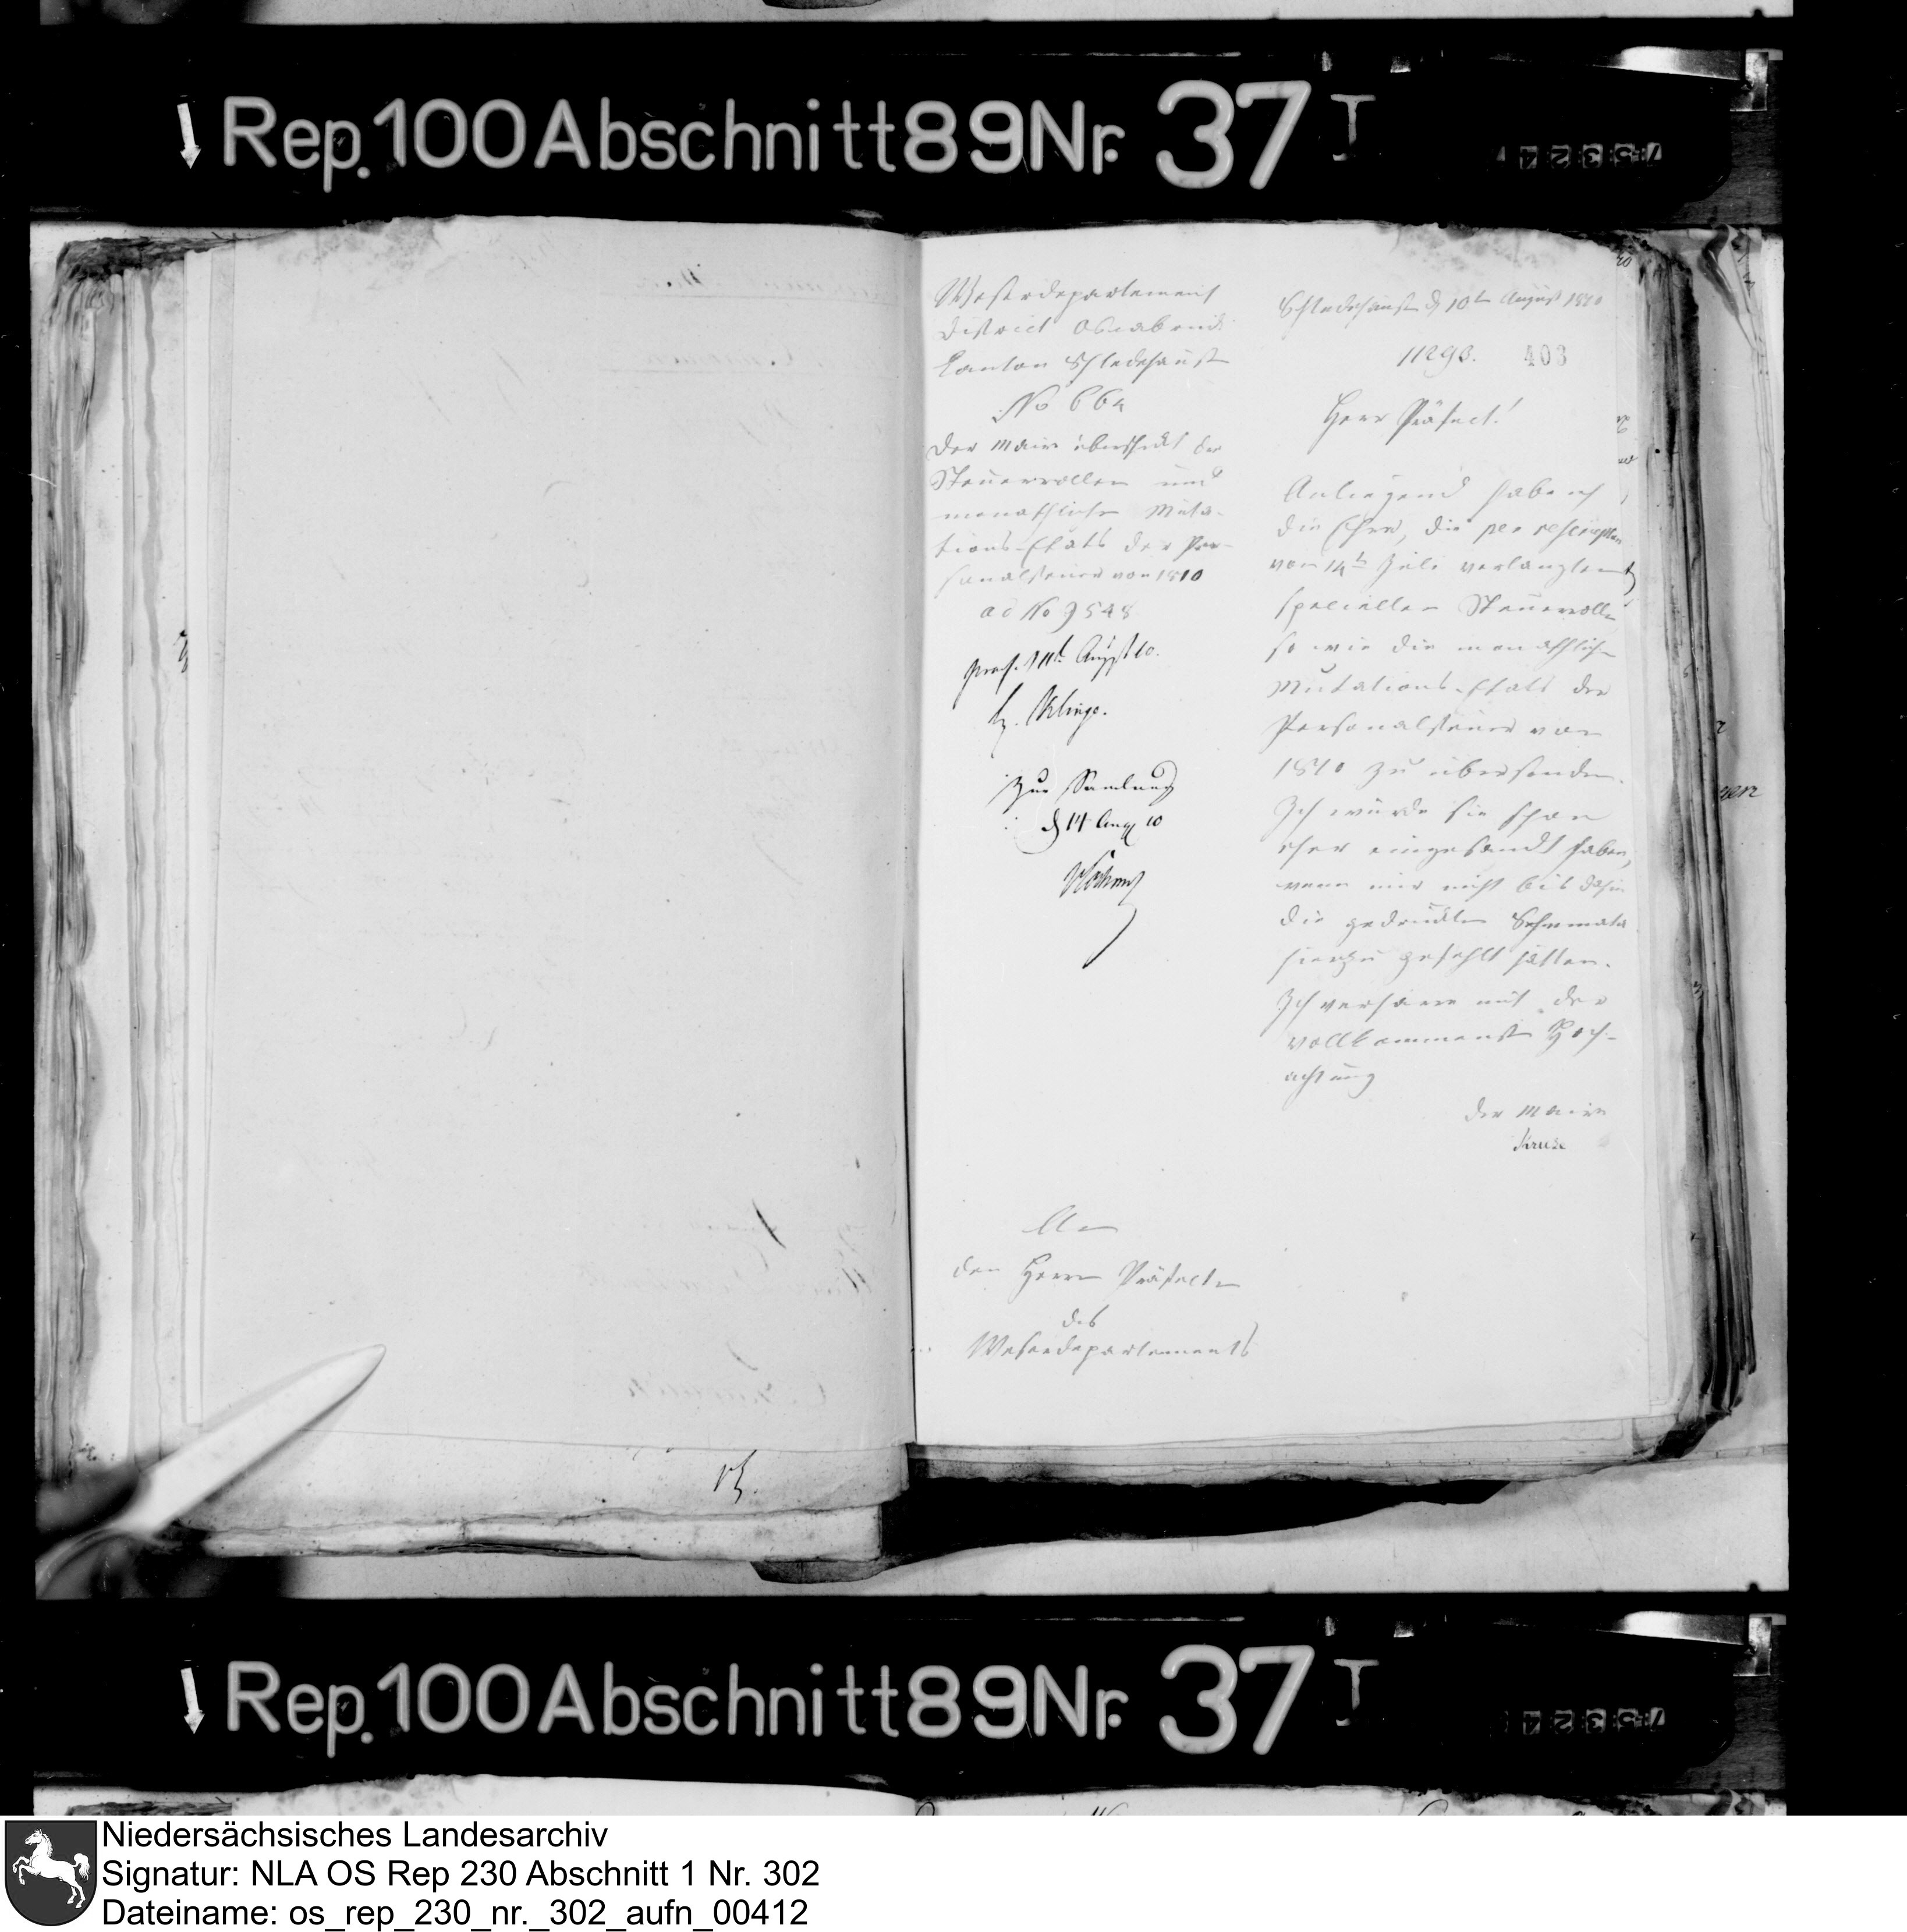 Rep. 100 Abschnitt 89 Nr. 37 I
75324
Weserdepartement
District Osnabrück
Canton Schledehausen
No 664
Der Maire überschickt die
Steuerrollen und
monathliche Muta-
tions-Etats der Per-
sonalsteuer von 1810
ad No 9548
praes. d 11t August 10.
Zur Samlung
d 14 Aug 10
An
den Herrn Präfecten
des
Weserdepartements
Schledehausen d 10ten August 1810
11293. 403
Herr Präfect!
Anliegend habe ich
die Ehre, die per rescriptum
vom 14t Juli verlangten
speciellen Steuerrollen
so wie die monathliche
Mutations-Etats der
Personalsteuer von
1810 zu übersenden.
Ich würde sie schon
eher eingesandt haben,
wenn mir nicht bis dahin
die gedruckten Schemata
hierzu gefehlt hätten.
Ich verharre mit der
vollkommensten Hoch-
achtung
der Maire
Kruse
Rep. 100 Abschnitt 89 Nr. 37 I
75324
Niedersächsisches Landesarchiv
Signatur: NLA OS Rep 230 Abschnitt 1 Nr. 302
Dateiname: os_rep_230_nr._302_aufn_00412